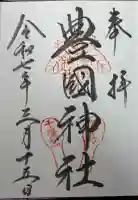 奉拝
豊國神社
令和七年三月十五日